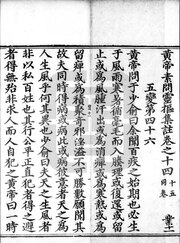 黃帝素問靈樞集註卷之十四 十五同卷
五變第四十六
黃帝問于少俞曰余聞百疾之始期也必生
于風雨寒暑循毫毛而入腠理或復還或留
止或為風腫汗出或為消癉或為寒熱或為
留痺或為積聚奇邪淫溢不可勝數願聞其
故夫同時得病或病此或病彼意者天之為
人生風乎何其異也少俞曰夫天之生風者
非以私百姓也其行公平正直犯者得之避
者得無殆非求人而人自犯之黃帝曰一時